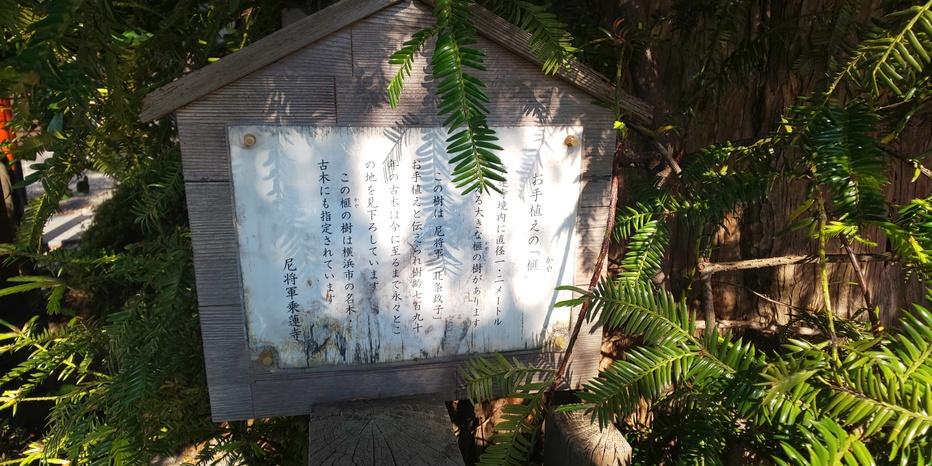 お手植えの「榧
かや
境内に直径一・二メートル
る大きな榧の樹があります
この樹は 尼将軍「北条政子」
お手植えと伝えられ樹齢七百九十
年の古木は今に至るまで永々とこ
の地を見下ろしています
この榧の樹は横浜市の名木
かや
古木にも指定されています
尼将軍乗蓮寺